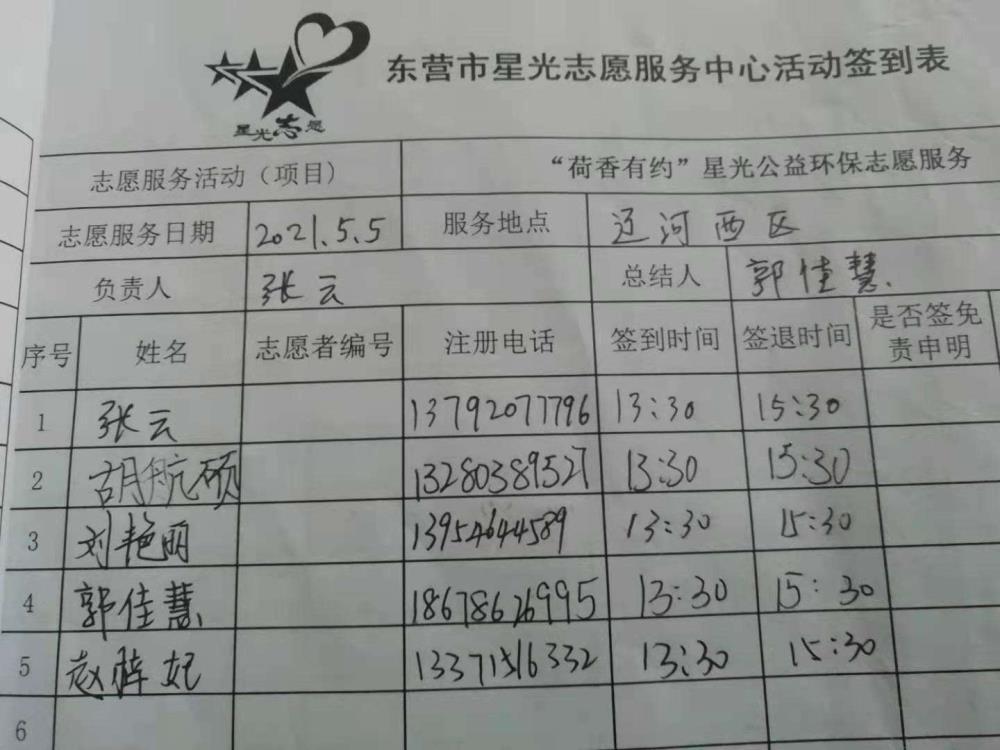 星光志愿
东营市星光志愿服务中心活动签到表
志愿服务活动（项目） “荷香有约”星光公益环保志愿服务
志愿服务日期 2021.5.5 服务地点 辽河西区
负责人 张云 总结人 郭佳慧
序号 姓名 志愿者编号 注册电话 签到时间 签退时间 是否签免
责申明
1 张云 13792077796 13:30 15:30
2 胡航硕 13280389527 13:30 15:30
3 刘艳丽 13954644589 13:30 15:30
4 郭佳慧 18678626995 13:30 15:30
5 赵梓妃 13371516332 13:30 15:30
6